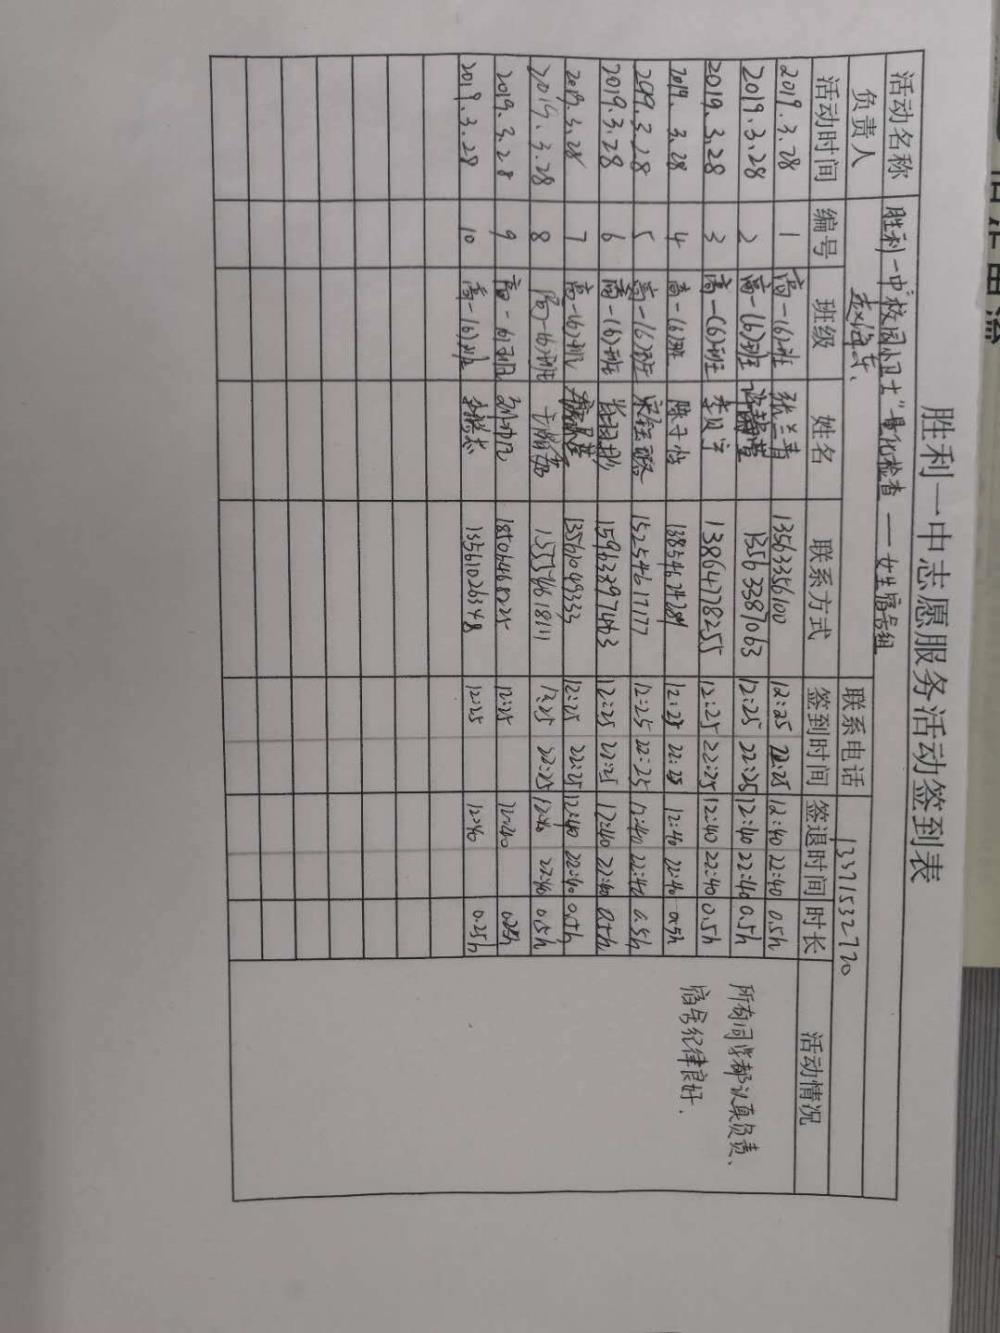 胜利一中志愿服务活动签到表
活动名称 胜利一中"校园小卫士"量化检查——女生宿舍组
负责人 联系电话 13371532720
活动时间 编号 班级 姓名 联系方式 签到时间 签退时间 时长 活动情况
2019.3.28 1 高一(6)班 张兰青 13563356100 12:25 22:25 12:40 22:40 0.5h
2019.3.28 2 高一(6)班 13563387063 12:25 22:25 12:40 22:40 0.5h
2019.3.28 3 高一(6)班 李贝宁 13864778255 12:25 22:25 12:40 22:40 0.5h
2019.3.28 4 高一(6)班 陈子怡 12:25 22:25 12:40 22:40 0.5h
2019.3.28 5 高一(6)班 15254617177 12:25 22:25 12:40 22:40 0.5h
2019.3.28 6 高一(6)班 15963897463 12:25 22:25 12:40 22:40 0.5h
2019.3.28 7 高一(6)班 13561049333 12:25 22:25 12:40 22:40 0.5h
2019.3.28 8 高一(6)班 12:25 22:25 12:40 22:40 0.5h
2019.3.28 9 高一(6)班 18506468025 12:25 12:40 0.25h
2019.3.28 10 高一(6)班 13561026348 12:25 12:40 0.25h
所有同学都认真负责、
宿舍纪律良好.